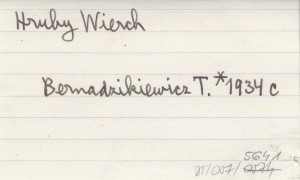 Hruby Wierch
Bernadzikiewicz T. *1934 c
5641